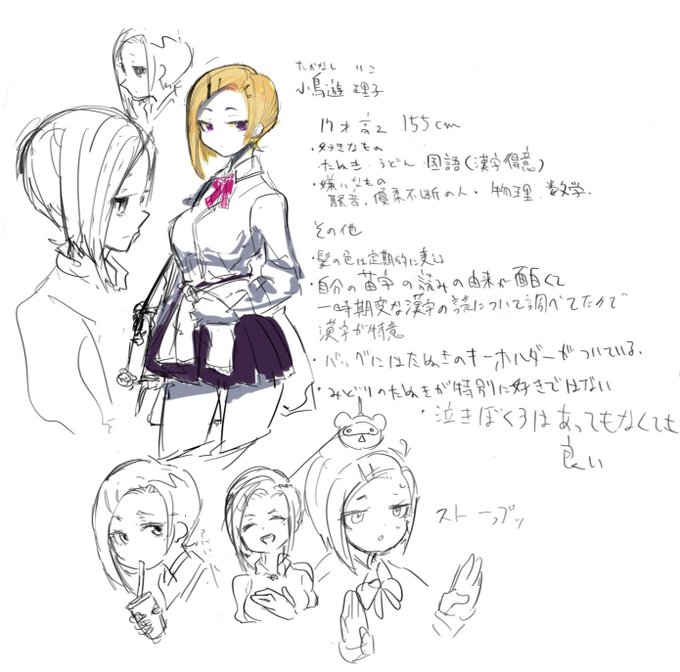 たかなし りこ
小鳥遊 理子
17才 高2 155cm
・好きなもの
たぬき うどん 国語(漢字得意)
・嫌いなもの
騒音、優柔不断の人・物理 数学.
その他
・髪の色は定期的に変わる
・自分の苗字の読みの由来が面白くて
一時期変な漢字の読について調べてたので
漢字が得意
・バッグにはたぬきのキーホルダーがついている、
・みどりのたぬきが特別に好きではない
・泣きぼくろはあってもなくても
良い
ストーップッ